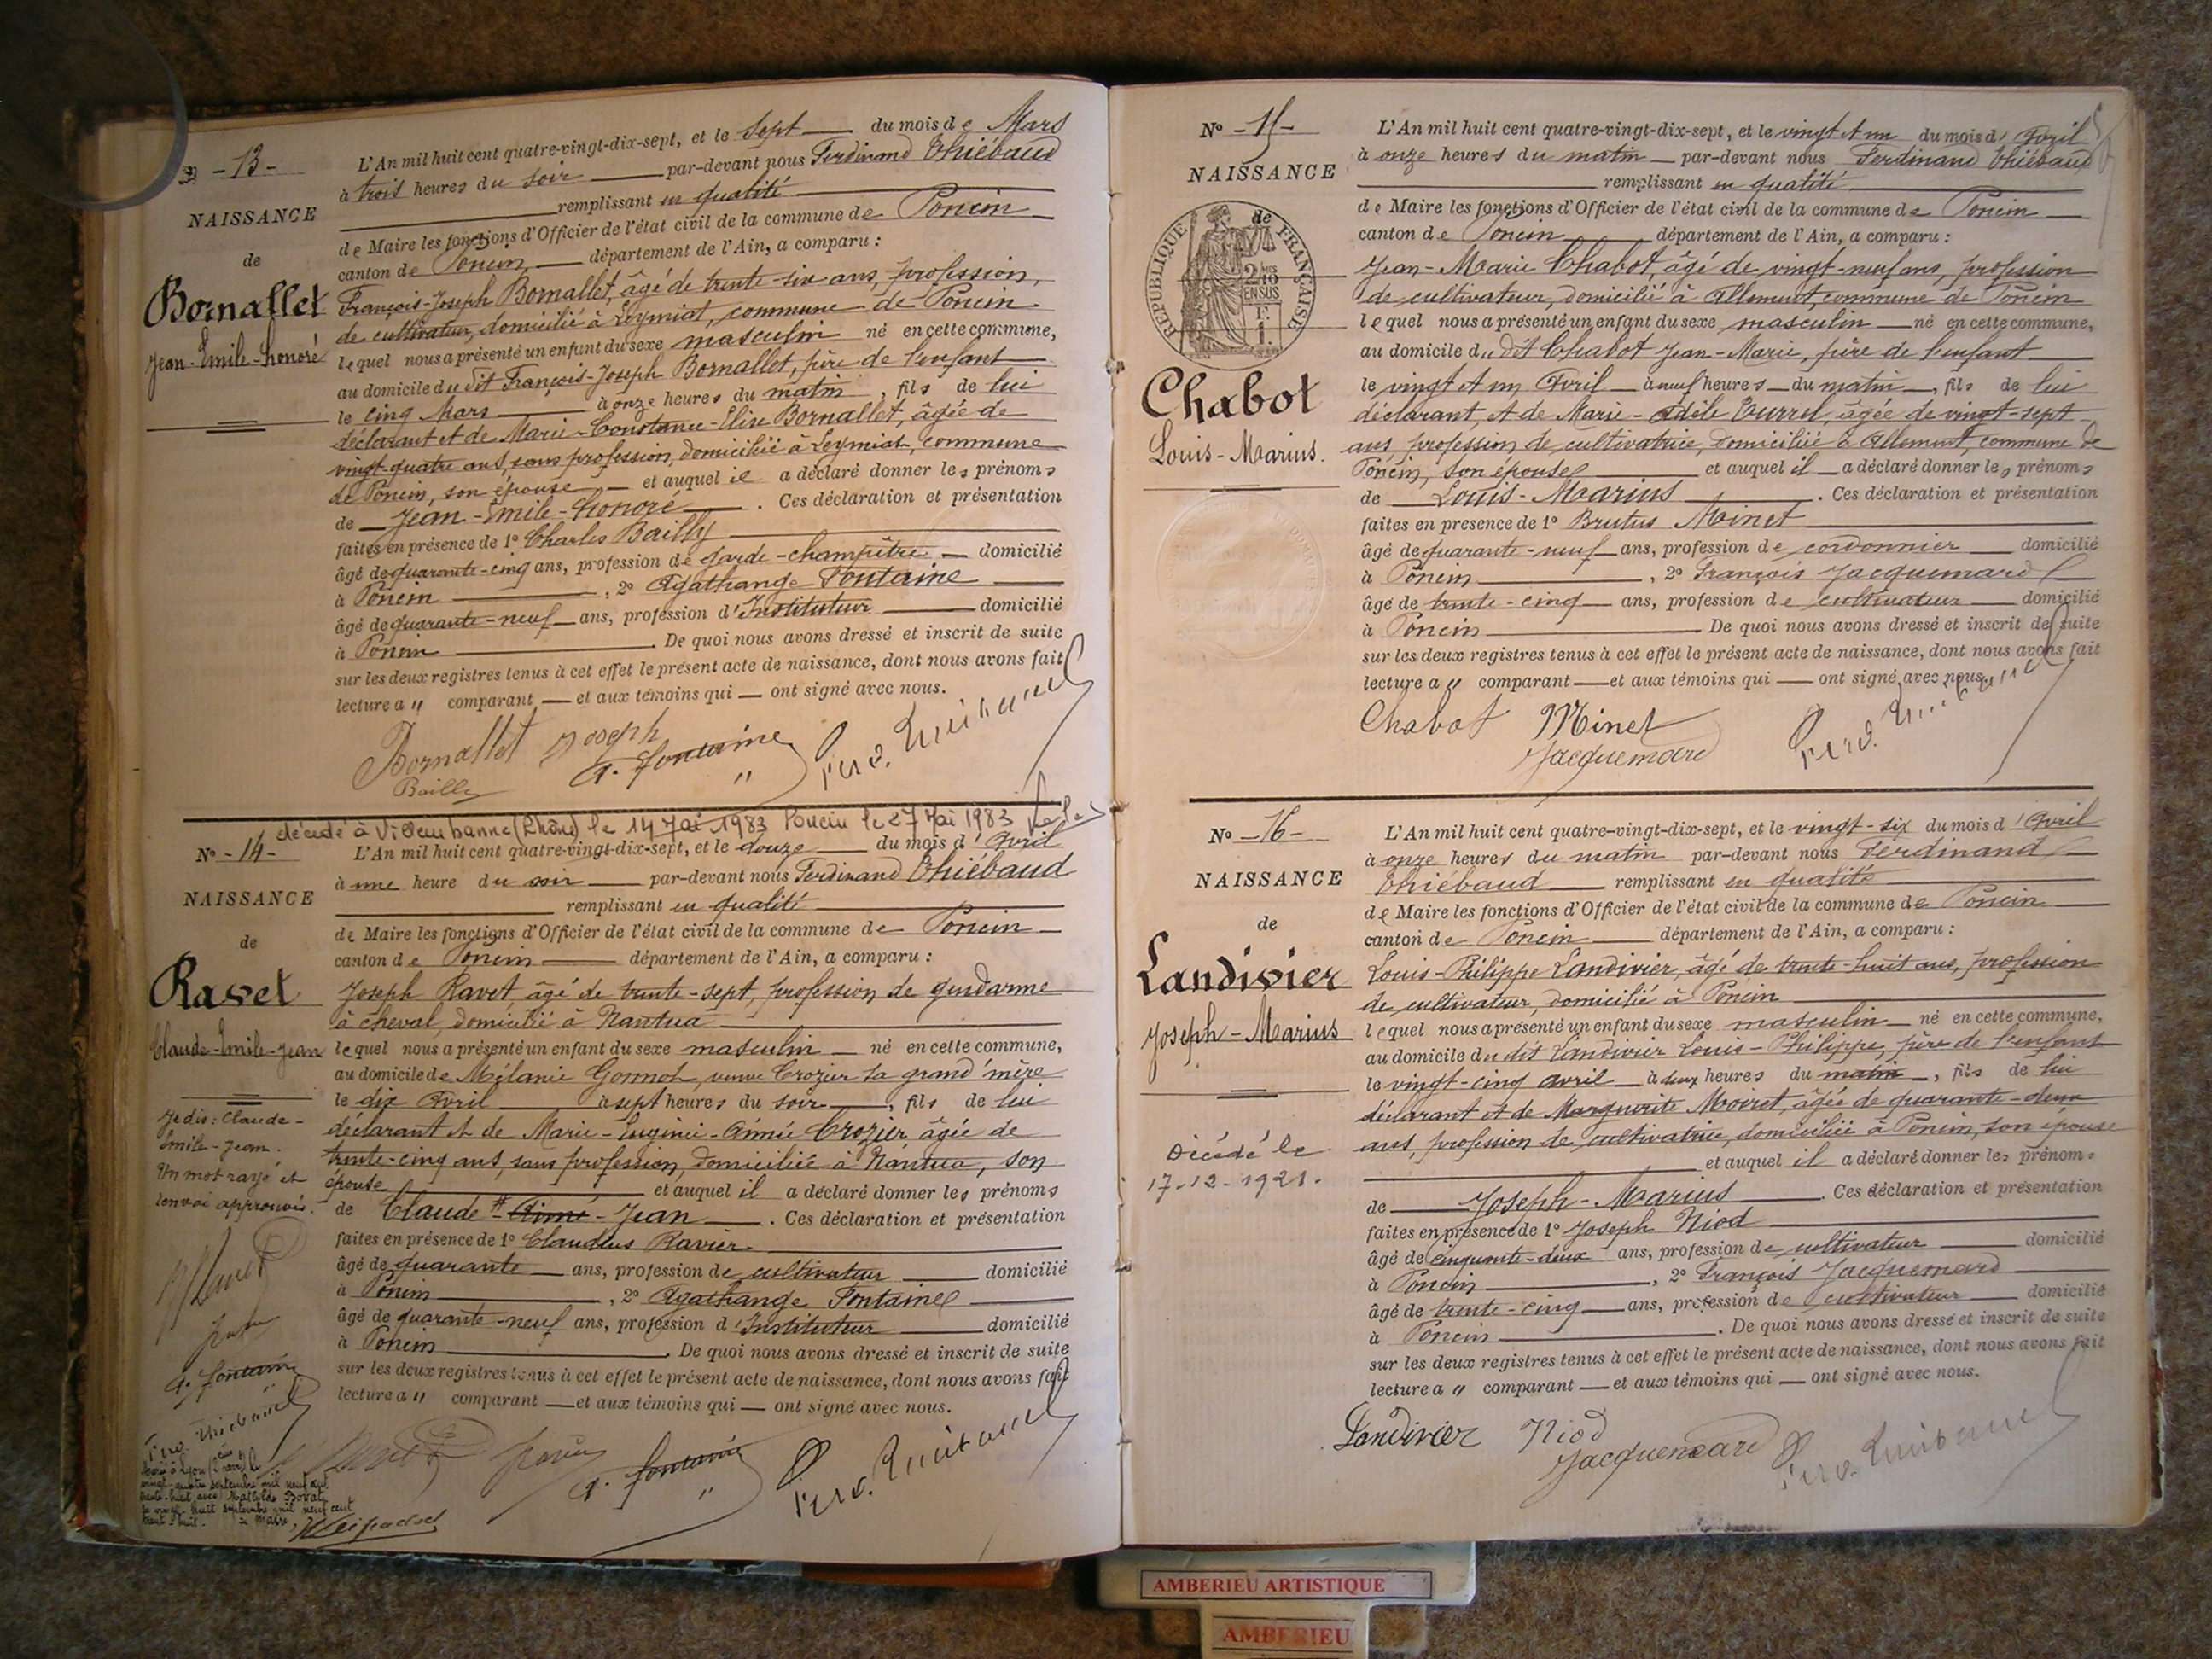 N° -13-
NAISSANCE
de
Bornallet
Jean-Emile-Honoré
L'An mil huit cent quatre-vingt-dix-sept, et le sept du mois de Mars
à trois heures du soir par-devant nous Ferdinand Thiébaud
remplissant en qualité
de Maire les fonctions d'Officier de l'état civil de la commune de Poncin
canton de Poncin département de l'Ain, a comparu :
François-Joseph Bornallet, âgé de trente-six ans, profession,
de cultivateur, domicilié à Leymiat, commune de Poncin
lequel nous a présenté un enfant du sexe masculin né en cette commune,
au domicile du dit François-Joseph Bornallet, père de l'enfant
le cinq Mars à onze heures du matin, fils de lui
déclarant et de Marie-Constance-Elise Bornallet, âgée de
vingt-quatre ans, sans profession, domiciliée à Leymiat, commune
de Poncin, son épouse et auquel il a déclaré donner les prénoms
de Jean-Emile-Honoré. Ces déclaration et présentation
faites en présence de 1° Charles Bailly
âgé de quarante-cinq ans, profession de garde-champêtre domicilié
à Poncin, 2° Agathange Fontaine
âgé de quarante-neuf ans, profession d'Instituteur domicilié
à Poncin. De quoi nous avons dressé et inscrit de suite
sur les deux registres tenus à cet effet le présent acte de naissance, dont nous avons fait
lecture a u comparant et aux témoins qui ont signé avec nous.
Bornallet Joseph
A. Fontaine
Bailly
décédé à Villeurbanne (Rhône) le 14 Mai 1983 Poncin le 27 Mai 1983
N° -14-
NAISSANCE
de
Ravet
Claude-Emile-Jean
Je dis : Claude-
Emile-Jean.
Un mot rayé et
renvoi approuvés.
A. Fontaine
Ferd. Thiébaud
L'An mil huit cent quatre-vingt-dix-sept, et le douze du mois d'Avril
à une heure du soir par-devant nous Ferdinand Thiébaud
remplissant en qualité
de Maire les fonctions d'Officier de l'état civil de la commune de Poncin
canton de Poncin département de l'Ain, a comparu :
Joseph Ravet, âgé de trente-sept, profession de gendarme
à cheval, domicilié à Nantua
lequel nous a présenté un enfant du sexe masculin né en cette commune,
au domicile de Mélanie Gonnot, veuve Crozier sa grand'mère
le dix Avril à sept heures du soir, fils de lui
déclarant et de Marie-Eugénie-Aimée Crozier, âgée de
trente-cinq ans, sans profession, domiciliée à Nantua, son
épouse et auquel il a déclaré donner les prénoms
de Claude # Aimé - Jean. Ces déclaration et présentation
faites en présence de 1° Claudius Ravier
âgé de quarante ans, profession de cultivateur domicilié
à Poncin, 2° Agathange Fontaine
âgé de quarante-neuf ans, profession d'Instituteur domicilié
à Poncin. De quoi nous avons dressé et inscrit de suite
sur les deux registres tenus à cet effet le présent acte de naissance, dont nous avons fait
lecture a u comparant et aux témoins qui ont signé avec nous.
A. Fontaine
vingt-quatre septembre mil neuf cent
vingt-huit septembre mil neuf cent
N° -15-
NAISSANCE
de
RÉPUBLIQUE FRANÇAISE
EN SUS
Chabot
Louis-Marius.
L'An mil huit cent quatre-vingt-dix-sept, et le vingt et un du mois d'Avril
à onze heures du matin par-devant nous Ferdinand Thiébaud
remplissant en qualité
de Maire les fonctions d'Officier de l'état civil de la commune de Poncin
canton de Poncin département de l'Ain, a comparu :
Jean-Marie Chabot, âgé de vingt-neuf ans, profession
de cultivateur, domicilié à Allement, commune de Poncin
lequel nous a présenté un enfant du sexe masculin né en cette commune,
au domicile du dit Chabot Jean-Marie, père de l'enfant
le vingt et un Avril à neuf heures du matin, fils de lui
déclarant, et de Marie-Adèle Tourrel, âgée de vingt-sept
ans, profession de cultivatrice, domiciliée à Allement, commune de
Poncin, son épouse et auquel il a déclaré donner les prénoms
de Louis-Marius. Ces déclaration et présentation
faites en présence de 1° Brutus Minet
âgé de quarante-neuf ans, profession de cordonnier domicilié
à Poncin, 2° François Jacquemard
âgé de trente-cinq ans, profession de cultivateur domicilié
à Poncin. De quoi nous avons dressé et inscrit de suite
sur les deux registres tenus à cet effet le présent acte de naissance, dont nous avons fait
lecture a u comparant et aux témoins qui ont signé avec nous.
Chabot Minet
Jacquemard
N° -16-
NAISSANCE
de
Landivier
Joseph-Marius
Décédé le
17-12-1921.
L'An mil huit cent quatre-vingt-dix-sept, et le vingt-six du mois d'Avril
à onze heures du matin par-devant nous Ferdinand
Thiébaud remplissant en qualité
de Maire les fonctions d'Officier de l'état civil de la commune de Poncin
canton de Poncin département de l'Ain, a comparu :
Louis-Philippe Landivier, âgé de trente-huit ans, profession
de cultivateur, domicilié à Poncin
lequel nous a présenté un enfant du sexe masculin né en cette commune,
au domicile du dit Landivier Louis-Philippe, père de l'enfant
le vingt-cinq avril à deux heures du matin, fils de lui
déclarant et de Marguerite Moiret, âgée de quarante-deux
ans, profession de cultivatrice, domiciliée à Poncin, son épouse
et auquel il a déclaré donner les prénoms
de Joseph-Marius. Ces déclaration et présentation
faites en présence de 1° Joseph Niod
âgé de cinquante-deux ans, profession de cultivateur domicilié
à Poncin, 2° François Jacquemard
âgé de trente-cinq ans, profession de cultivateur domicilié
à Poncin. De quoi nous avons dressé et inscrit de suite
sur les deux registres tenus à cet effet le présent acte de naissance, dont nous avons fait
lecture a u comparant et aux témoins qui ont signé avec nous.
Landivier Niod
Jacquemard
AMBERIEU ARTISTIQUE
AMBERIEU